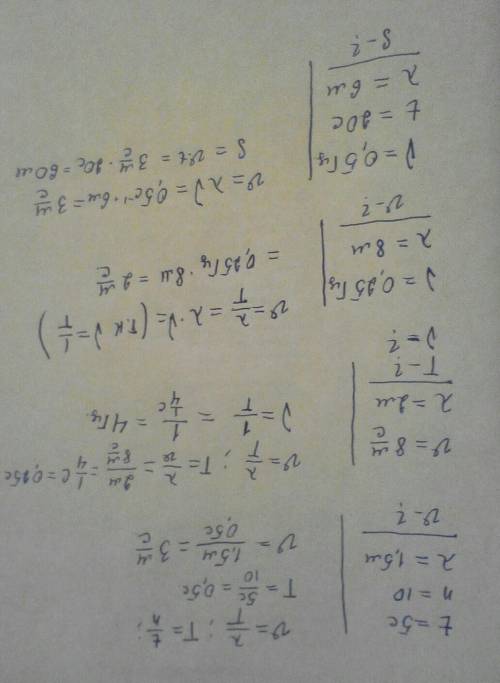 t = 5c
n = 10
λ = 1,5м
v - ?
v = λ/T ; T = t/n ;
T = 5c/10 = 0,5c
v = 1,5м/0,5c = 3 м/c
v = 8 м/c
λ = 2м
T - ?
ν - ?
v = λ/T ; T = λ/v = 2м/8 м/c = 1/4 c = 0,25c
ν = 1/T = 1/(1/4 c) = 4Гц.
ν = 0,25Гц
λ = 8м
v - ?
v = λ/T = λ · ν = (т.к ν = 1/T)
= 0,25Гц · 8м = 2 м/c
ν = 0,5Гц
t = 20c
λ = 6м
S - ?
v = λν = 0,5c⁻¹ · 6м = 3 м/c
S = v·t = 3 м/c · 20c = 60м